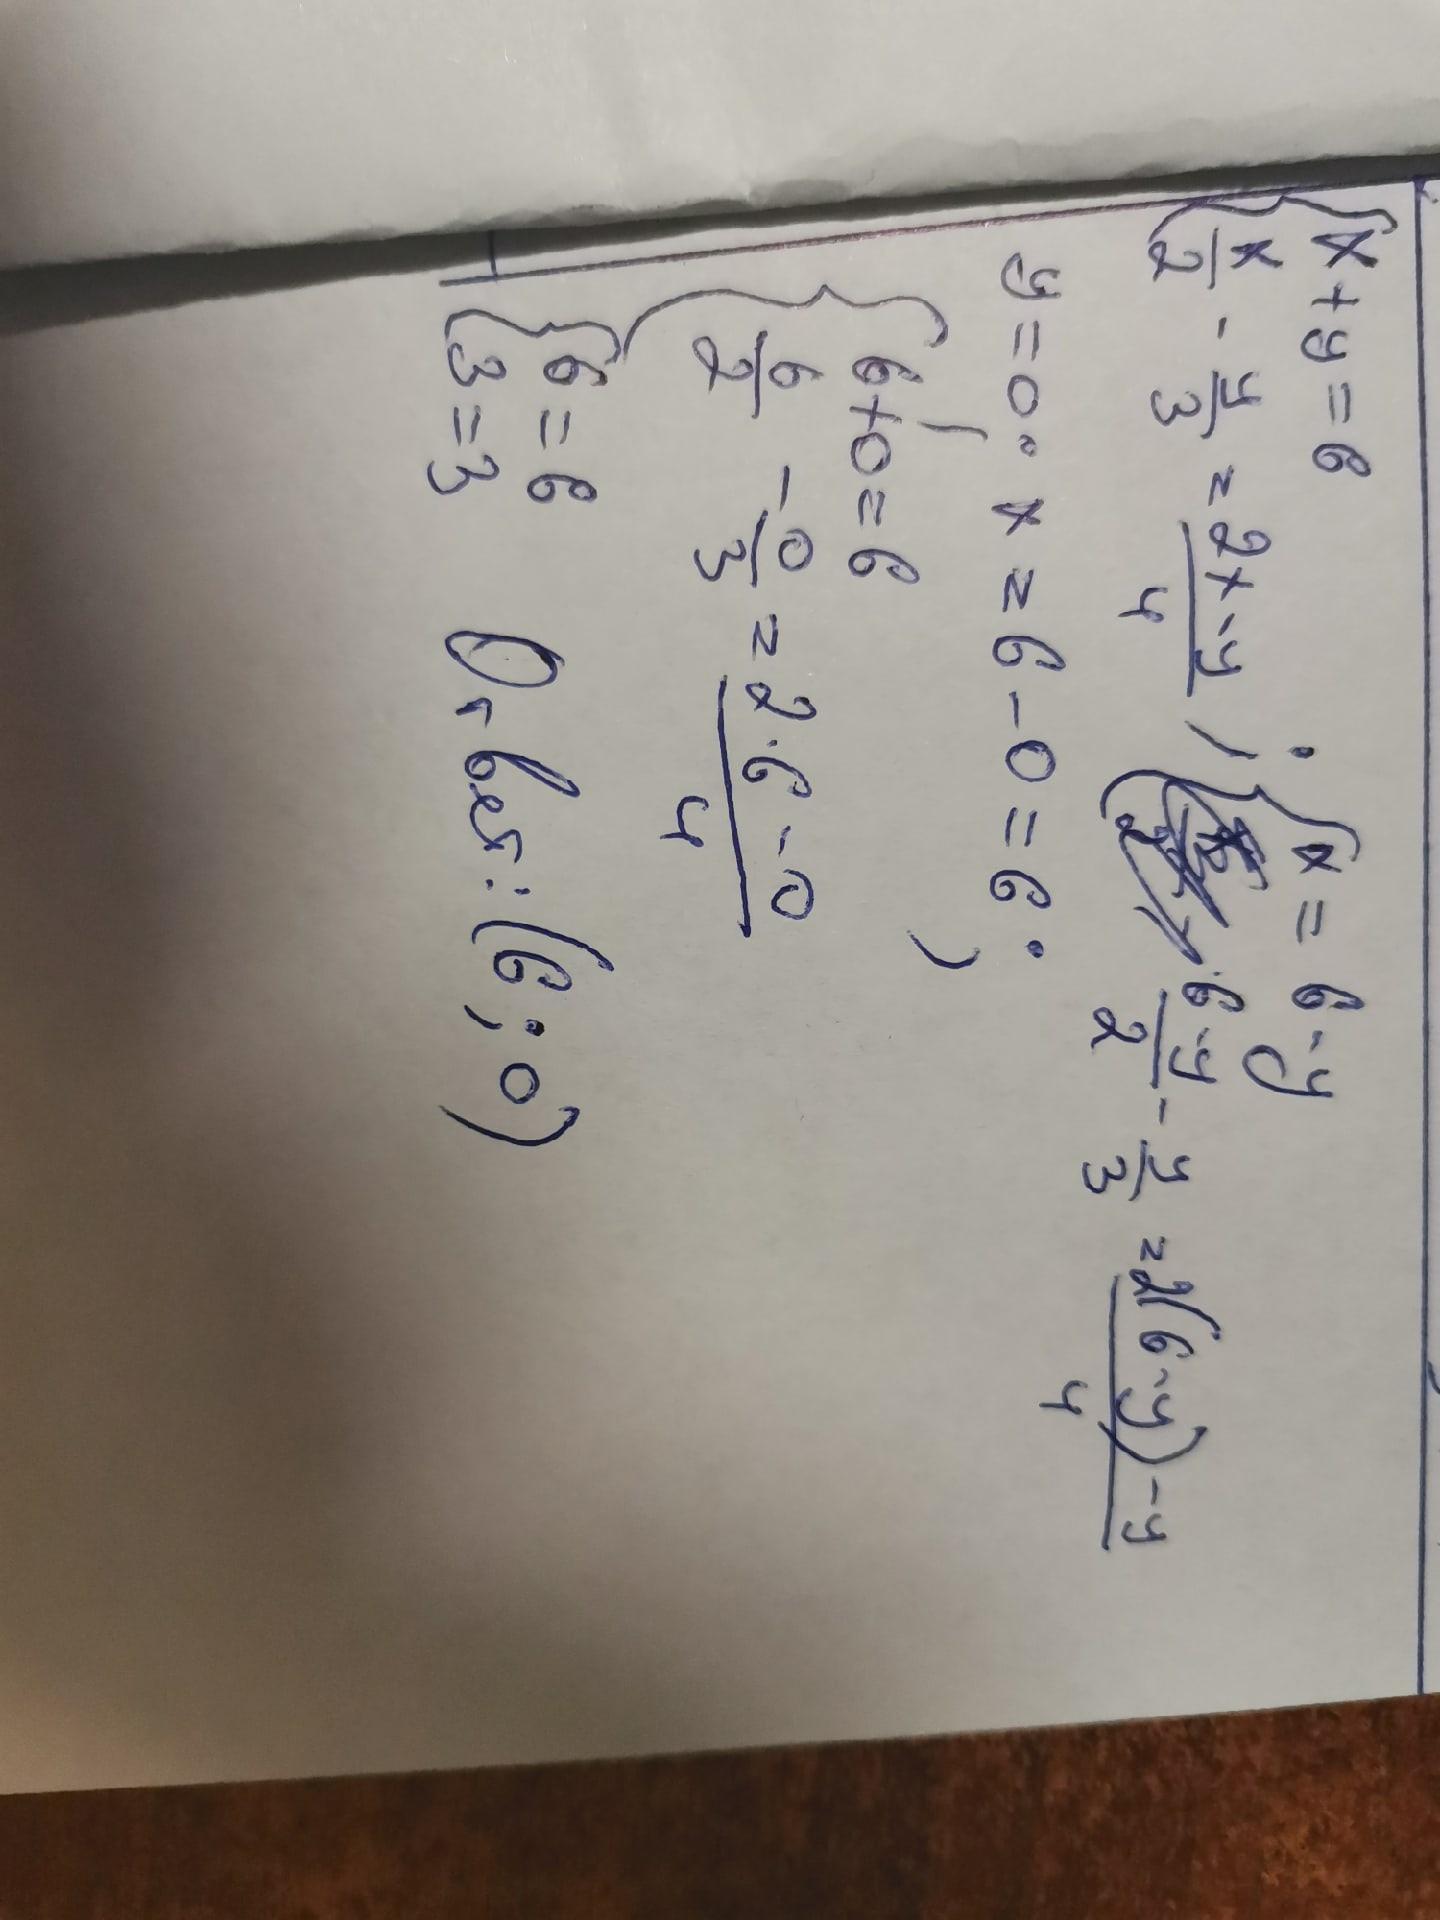 {x+y=6 ; {x=6-y
{x/2 - y/3 = (2x-y)/4 ; { (6-y)/2 - y/3 = (2(6-y)-y)/4
y=0; x=6-0=6;
{6+0=6
{6/2 - 0/3 = (2·6-0)/4
{6=6
{3=3 Ответ: (6; 0)